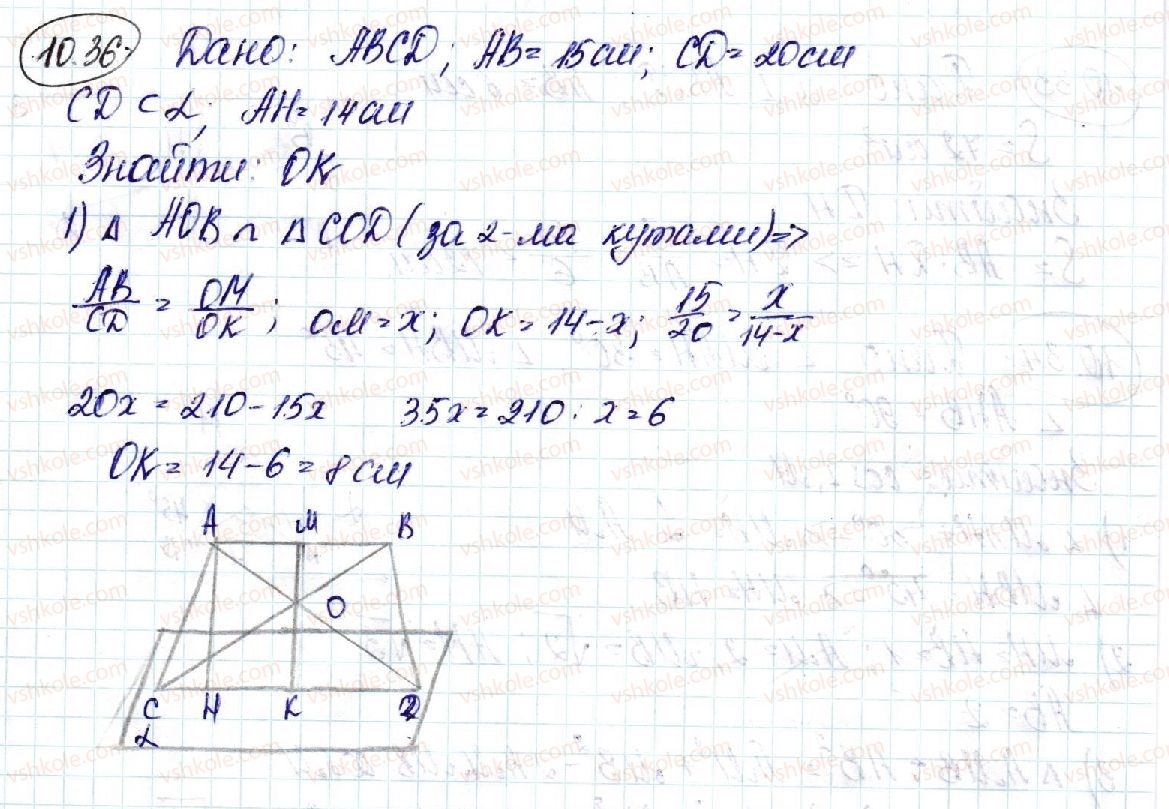 10.36 Дано: ABCD; AB = 15см; CD = 20см
CD ⊂ α; AH = 14см
Знайти: OK
1) Δ AOB ∩ Δ COD (за 2-ма кутами) =>
AB/CD = OM/OK; OM = x; OK = 14-x; 15/20 = x/14-x
20x = 210-15x 35x = 210: x = 6
OK = 14-6 = 8см
A M B
O
C H K D
α
vshkole.com